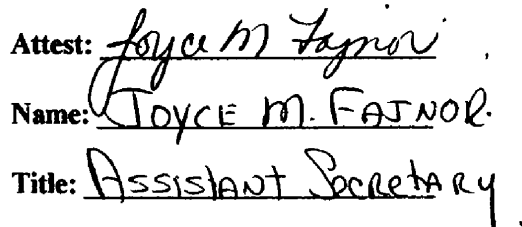 Attest: Joyce M Fajnor
Name: JOYCE M. FAJNOR.
Title: Assistant Secretary